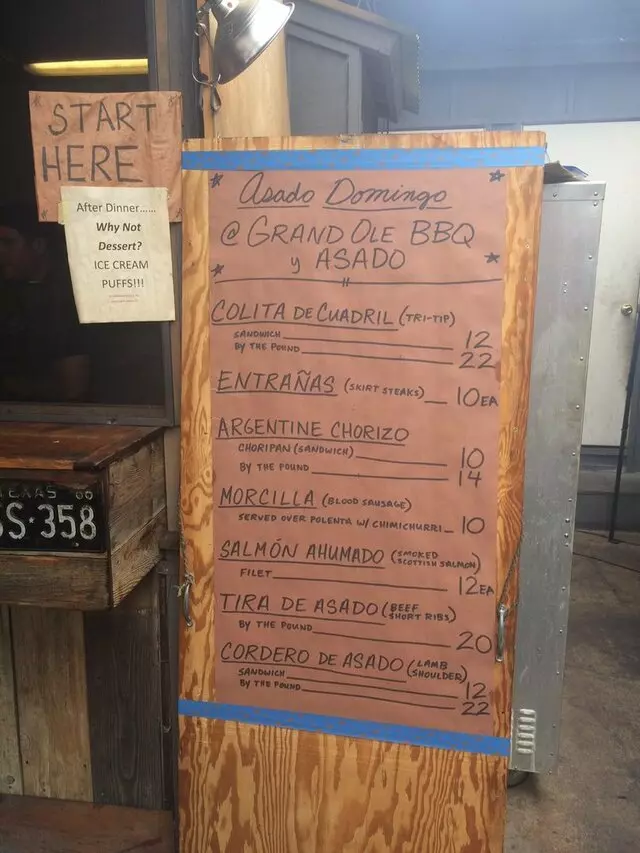 START
HERE
After Dinner......
Why Not
Dessert?
ICE CREAM
PUFFS!!!
TEXAS 66
SS·358
Asado Domingo
@ GRAND OLE BBQ
y ASADO
COLITA DE CUADRIL (TRI-TIP)
SANDWICH 12
BY THE POUND 22
ENTRAÑAS (SKIRT STEAKS) 10EA
ARGENTINE CHORIZO
CHORIPAN (SANDWICH) 10
BY THE POUND 14
MORCILLA (BLOOD SAUSAGE)
SERVED OVER POLENTA W/ CHIMICHURRI 10
SALMÓN AHUMADO (SMOKED SCOTTISH SALMON)
FILET 12EA
TIRA DE ASADO (BEEF SHORT RIBS)
BY THE POUND 20
CORDERO DE ASADO (LAMB SHOULDER)
SANDWICH 12
BY THE POUND 22